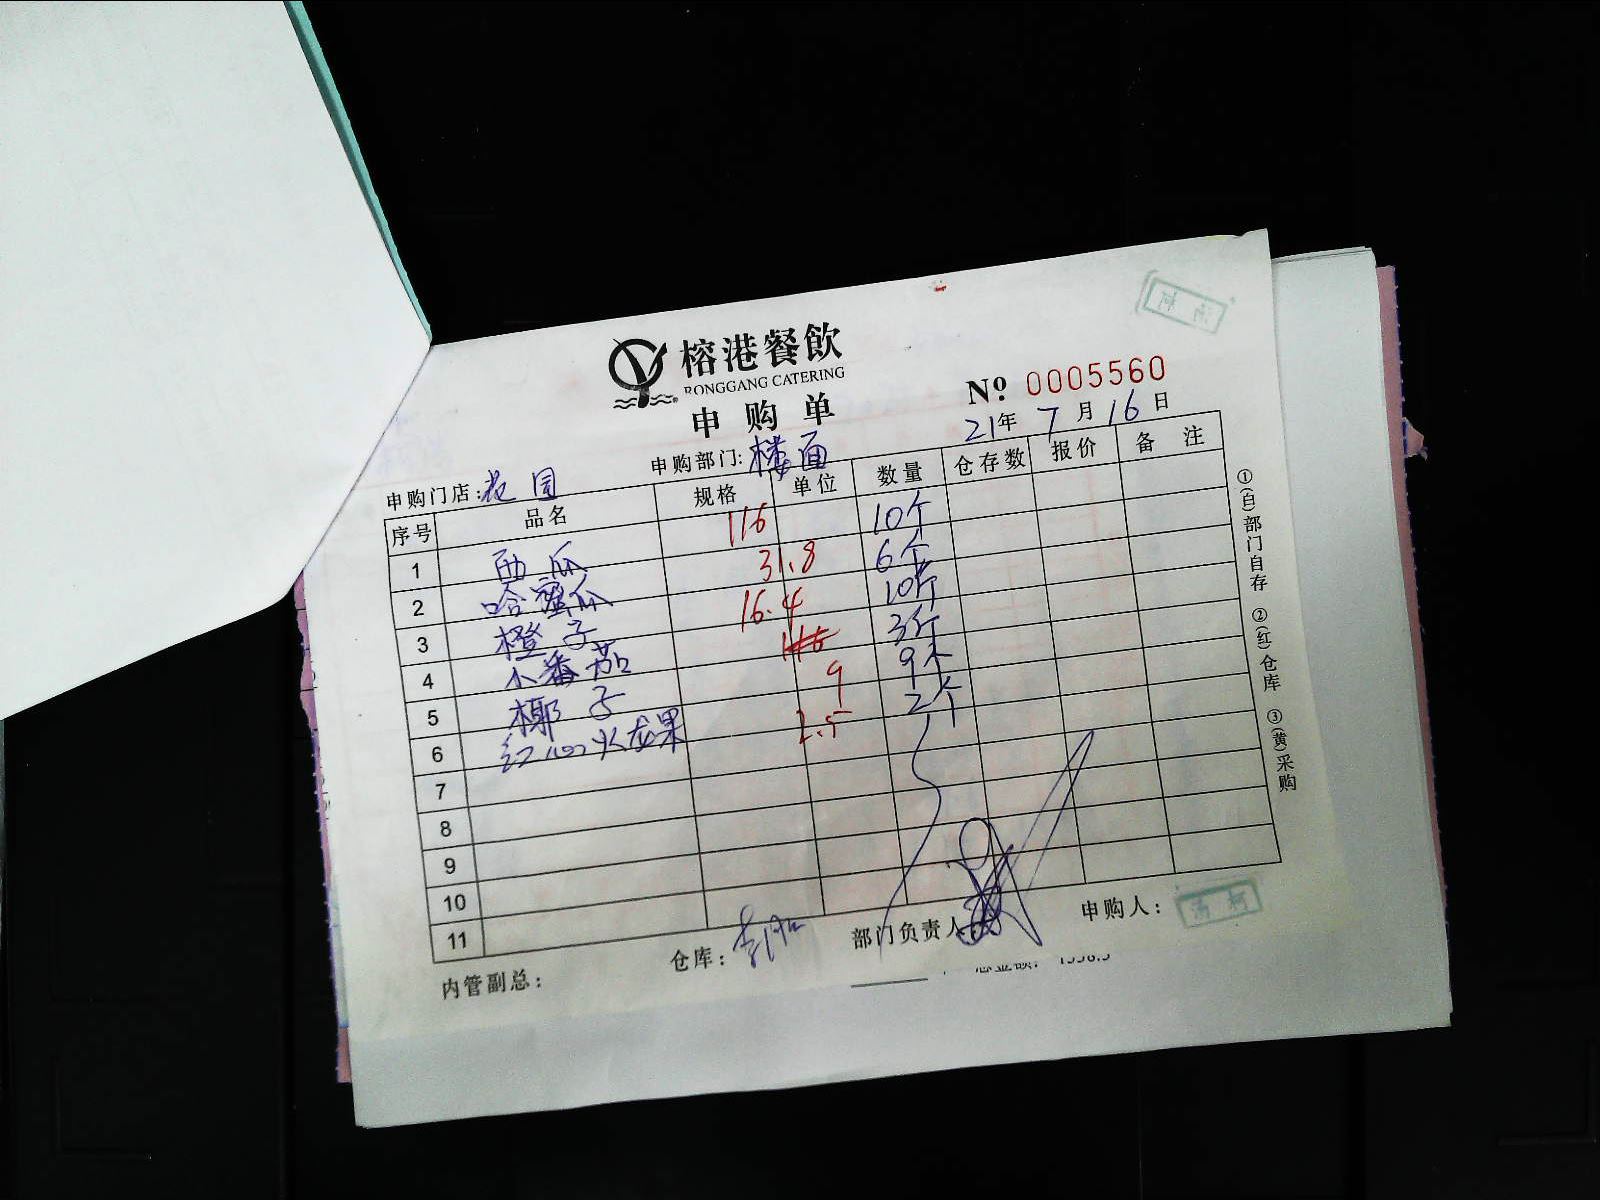 榕港餐飲
RONGGANG CATERING
申购单
№ 0005560
21年 7月 16日
申购门店: 花园 申购部门: 楼面
序号 品名 规格 单位 数量 仓存数 报价 备 注
1 西瓜 116 10个
2 哈蜜瓜 31.8 6个
3 橙子 16.4 10个
4 小番茄 3斤
5 椰子 9 9个
6 红心火龙果 2.5 2个
7
8
9
10
11
内管副总: 仓库: 部门负责人: 申购人:
①(白)部门自存 ②(红)仓库 ③(黄)采购